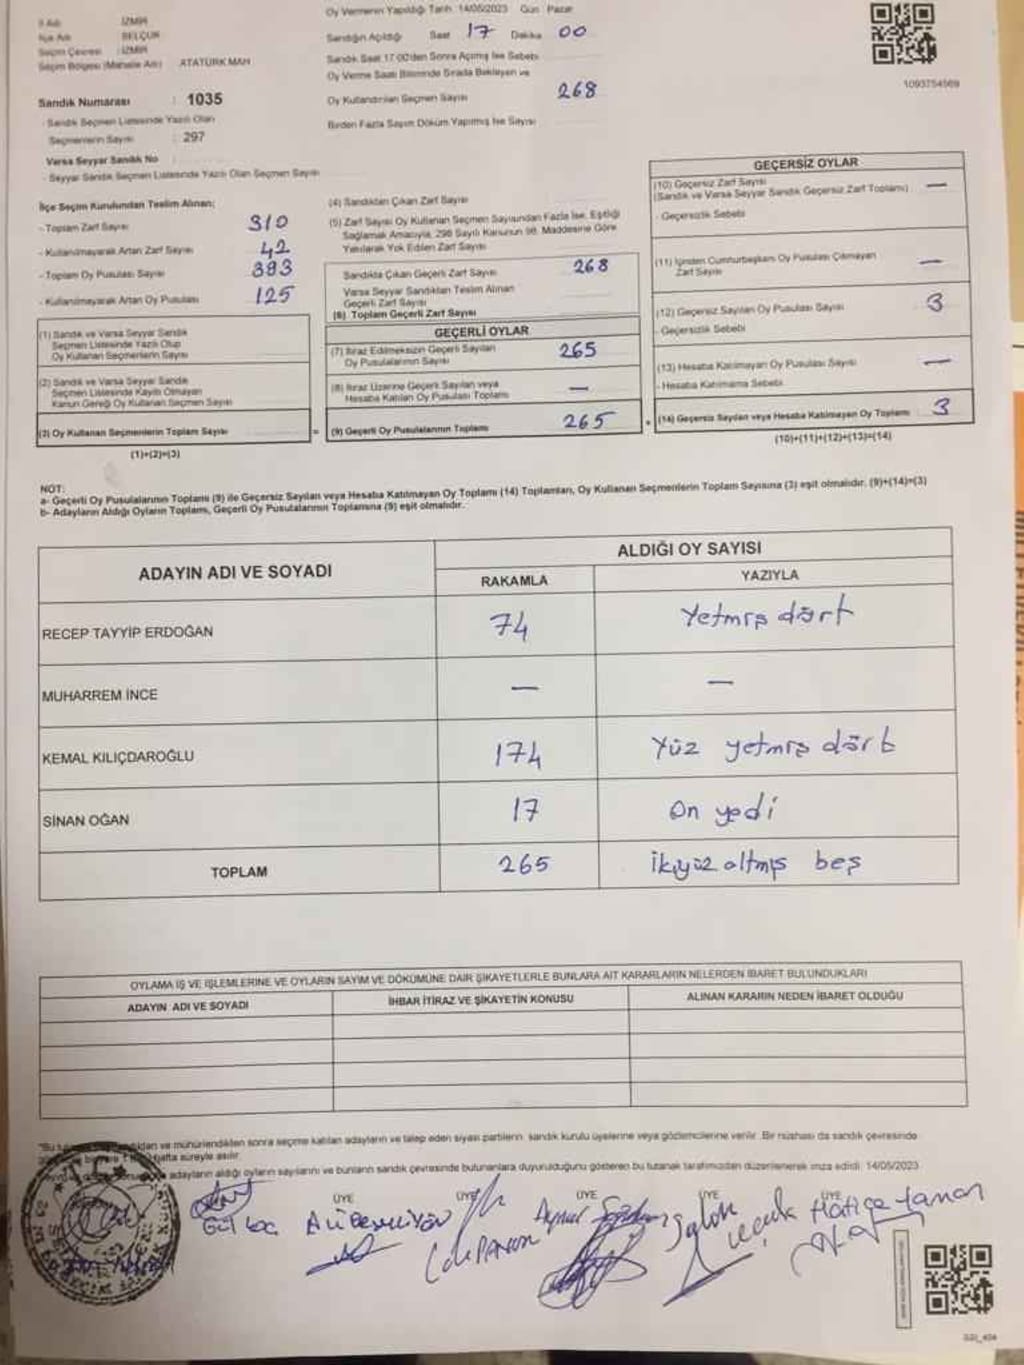 İl Adı İZMİR
İlçe Adı SELÇUK
Seçim Çevresi : İZMİR
Seçim Bölgesi (Mahalle Adı) ATATÜRK MAH
Sandık Numarası : 1035
- Sandık Seçmen Listesinde Yazılı Olan
Seçmenlerin Sayısı : 297
Varsa Seyyar Sandık No
- Seyyar Sandık Seçmen Listesinde Yazılı Olan Seçmen Sayısı
Oy Vermenin Yapıldığı Tarih 14/05/2023 Gün Pazar
Sandığın Açıldığı Saat 17 Dakika 00
Sandık Saat 17.00'den Sonra Açılmış İse Sebebi
Oy Verme Saati Bitiminde Sırada Bekleyen ve
Oy Kullandırılan Seçmen Sayısı 268
Birden Fazla Sayım Döküm Yapılmış İse Sayısı
1093754569
İlçe Seçim Kurulundan Teslim Alınan;
- Toplam Zarf Sayısı 310
- Kullanılmayarak Artan Zarf Sayısı 42
- Toplam Oy Pusulası Sayısı 393
- Kullanılmayarak Artan Oy Pusulası 125
(1) Sandık ve Varsa Seyyar Sandık
Seçmen Listesinde Yazılı Olup
Oy Kullanan Seçmenlerin Sayısı
(2) Sandık ve Varsa Seyyar Sandık
Seçmen Listesinde Kayıtlı Olmayan
Kanun Gereği Oy Kullanan Seçmen Sayısı
(3) Oy Kullanan Seçmenlerin Toplam Sayısı
(1)+(2)=(3)
(4) Sandıktan Çıkan Zarf Sayısı
(5) Zarf Sayısı Oy Kullanan Seçmen Sayısından Fazla İse, Eşitliği
Sağlamak Amacıyla, 298 Sayılı Kanunun 98. Maddesine Göre
Yakılarak Yok Edilen Zarf Sayısı
Sandıkta Çıkan Geçerli Zarf Sayısı 268
Varsa Seyyar Sandıktan Teslim Alınan
Geçerli Zarf Sayısı
(6) Toplam Geçerli Zarf Sayısı
GEÇERLİ OYLAR
(7) İtiraz Edilmeksizin Geçerli Sayılan
Oy Pusulalarının Sayısı 265
(8) İtiraz Üzerine Geçerli Sayılan veya
Hesaba Katılan Oy Pusulası Toplamı —
= (9) Geçerli Oy Pusulalarının Toplamı 265 +
GEÇERSİZ OYLAR
(10) Geçersiz Zarf Sayısı
(Sandık ve Varsa Seyyar Sandık Geçersiz Zarf Toplamı) —
- Geçersizlik Sebebi
(11) İçinden Cumhurbaşkanı Oy Pusulası Çıkmayan
Zarf Sayısı —
(12) Geçersiz Sayılan Oy Pusulası Sayısı 3
- Geçersizlik Sebebi
(13) Hesaba Katılmayan Oy Pusulası Sayısı —
- Hesaba Katılmama Sebebi
(14) Geçersiz Sayılan veya Hesaba Katılmayan Oy Toplamı 3
(10)+(11)+(12)+(13)=(14)
NOT:
a- Geçerli Oy Pusulalarının Toplamı (9) ile Geçersiz Sayılan veya Hesaba Katılmayan Oy Toplamı (14) Toplamları, Oy Kullanan Seçmenlerin Toplam Sayısına (3) eşit olmalıdır. (9)+(14)=(3)
b- Adayların Aldığı Oyların Toplamı, Geçerli Oy Pusulalarının Toplamına (9) eşit olmalıdır.
ADAYIN ADI VE SOYADI ALDIĞI OY SAYISI
RAKAMLA YAZIYLA
RECEP TAYYİP ERDOĞAN 74 Yetmiş dört
MUHARREM İNCE — —
KEMAL KILIÇDAROĞLU 174 Yüz yetmiş dört
SİNAN OĞAN 17 On yedi
TOPLAM 265 İkiyüz altmış beş
OYLAMA İŞ VE İŞLEMLERİNE VE OYLARIN SAYIM VE DÖKÜMÜNE DAİR ŞİKAYETLERLE BUNLARA AİT KARARLARIN NELERDEN İBARET BULUNDUKLARI
ADAYIN ADI VE SOYADI İHBAR İTİRAZ VE ŞİKAYETİN KONUSU ALINAN KARARIN NEDEN İBARET OLDUĞU
"Bu ve mühürlendikten sonra seçime katılan adayların ve talep eden siyasi partilerin sandık kurulu üyelerine veya gözlemcilerine verilir. Bir nüshası da sandık çevresinde
hafta süreyle asılır.
adayların aldığı oyların sayılarını ve bunların sandık çevresinde bulunanlara duyurulduğunu gösteren bu tutanak tarafımızdan düzenlenerek imza edildi. 14/05/2023
ÜYE ÜYE ÜYE ÜYE ÜYE
Gül Ali Aynur Hatice